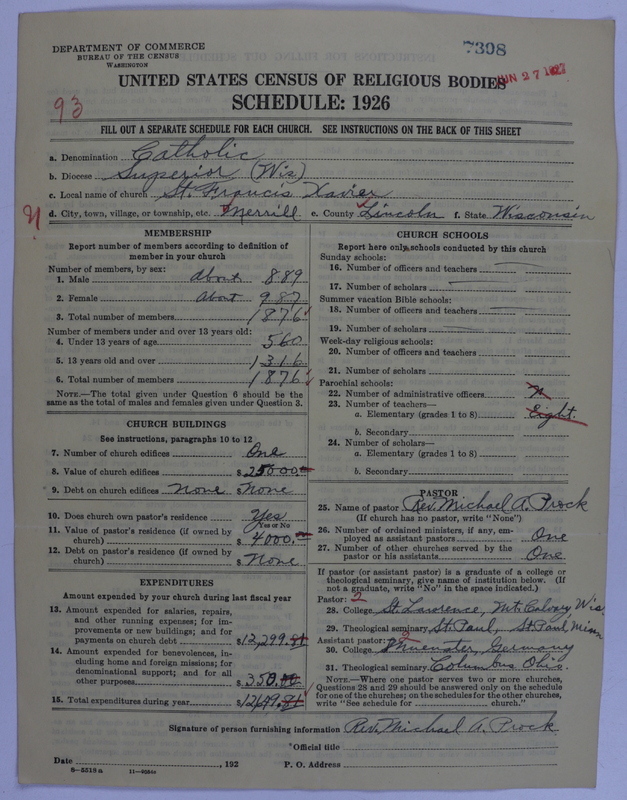 DEPARTMENT OF COMMERCE
BUREAU OF THE CENSUS
WASHINGTON
7398
JUN 27 1927
UNITED STATES CENSUS OF RELIGIOUS BODIES
SCHEDULE: 1926
93
FILL OUT A SEPARATE SCHEDULE FOR EACH CHURCH. SEE INSTRUCTIONS ON THE BACK OF THIS SHEET
a. Denomination Catholic
b. Diocese Superior (Wis.)
c. Local name of church St. Francis Xavier
d. City, town, village, or township, etc. Merrill e. County Lincoln f. State Wisconsin
MEMBERSHIP
Report number of members according to definition of
member in your church
Number of members, by sex:
1. Male about 889
2. Female about 987
3. Total number of members 1876
Number of members under and over 13 years old:
4. Under 13 years of age 560
5. 13 years old and over 1316
6. Total number of members 1876
NOTE.—The total given under Question 6 should be the
same as the total of males and females given under Question 3.
CHURCH BUILDINGS
See instructions, paragraphs 10 to 12
7. Number of church edifices One
8. Value of church edifices $ 25000.
9. Debt on church edifices None $ None
10. Does church own pastor's residence Yes
Yes or No
11. Value of pastor's residence (if owned by
church) $ 4000.
12. Debt on pastor's residence (if owned by
church) $ None
EXPENDITURES
Amount expended by your church during last fiscal year
13. Amount expended for salaries, repairs,
and other running expenses; for im-
provements or new buildings; and for
payments on church debt $ 12,299.81
14. Amount expended for benevolences, in-
cluding home and foreign missions; for
denominational support; and for all
other purposes $ 350.00
15. Total expenditures during year $ 12649.81
CHURCH SCHOOLS
Report here only schools conducted by this church
Sunday schools:
16. Number of officers and teachers
17. Number of scholars
Summer vacation Bible schools:
18. Number of officers and teachers
19. Number of scholars
Week-day religious schools:
20. Number of officers and teachers
21. Number of scholars
Parochial schools:
22. Number of administrative officers
23. Number of teachers—
a. Elementary (grades 1 to 8) Eight.
b. Secondary
24. Number of scholars—
a. Elementary (grades 1 to 8)
b. Secondary
PASTOR
25. Name of pastor Rev. Michael A. Prock
(If church has no pastor, write "None")
26. Number of ordained ministers, if any, em-
ployed as assistant pastors One
27. Number of other churches served by the
pastor or his assistants One
If pastor (or assistant pastor) is a graduate of a college or
theological seminary, give name of institution below. (If
not a graduate, write "No" in the space indicated.)
Pastor: 2
28. College St. Lawrence, Mt. Calvary Wis
29. Theological seminary St. Paul, St. Paul Minn
Assistant pastor: 2
30. College Muenster, Germany
31. Theological seminary Columbus Ohio.
NOTE.—Where one pastor serves two or more churches,
Questions 28 and 29 should be answered only on the schedule
for one of the churches; on the schedules for the other churches,
write "See schedule for church."
Signature of person furnishing information Rev. Michael A. Prock
Official title
Date , 192 P. O. Address
8—5518a 11—9204a